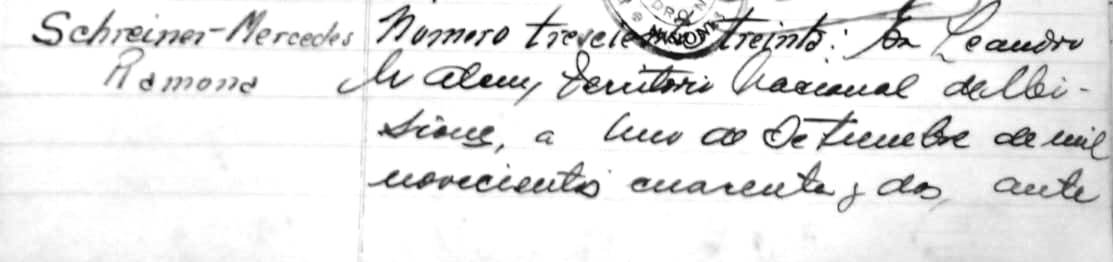 Schreiner-Mercedes
Ramona
Numero trescientos treinta: En Leandro
N. Alem, Territorio Nacional de Mi-
siones, a uno de Setiembre de mil
novecientos cuarenta y dos, ante